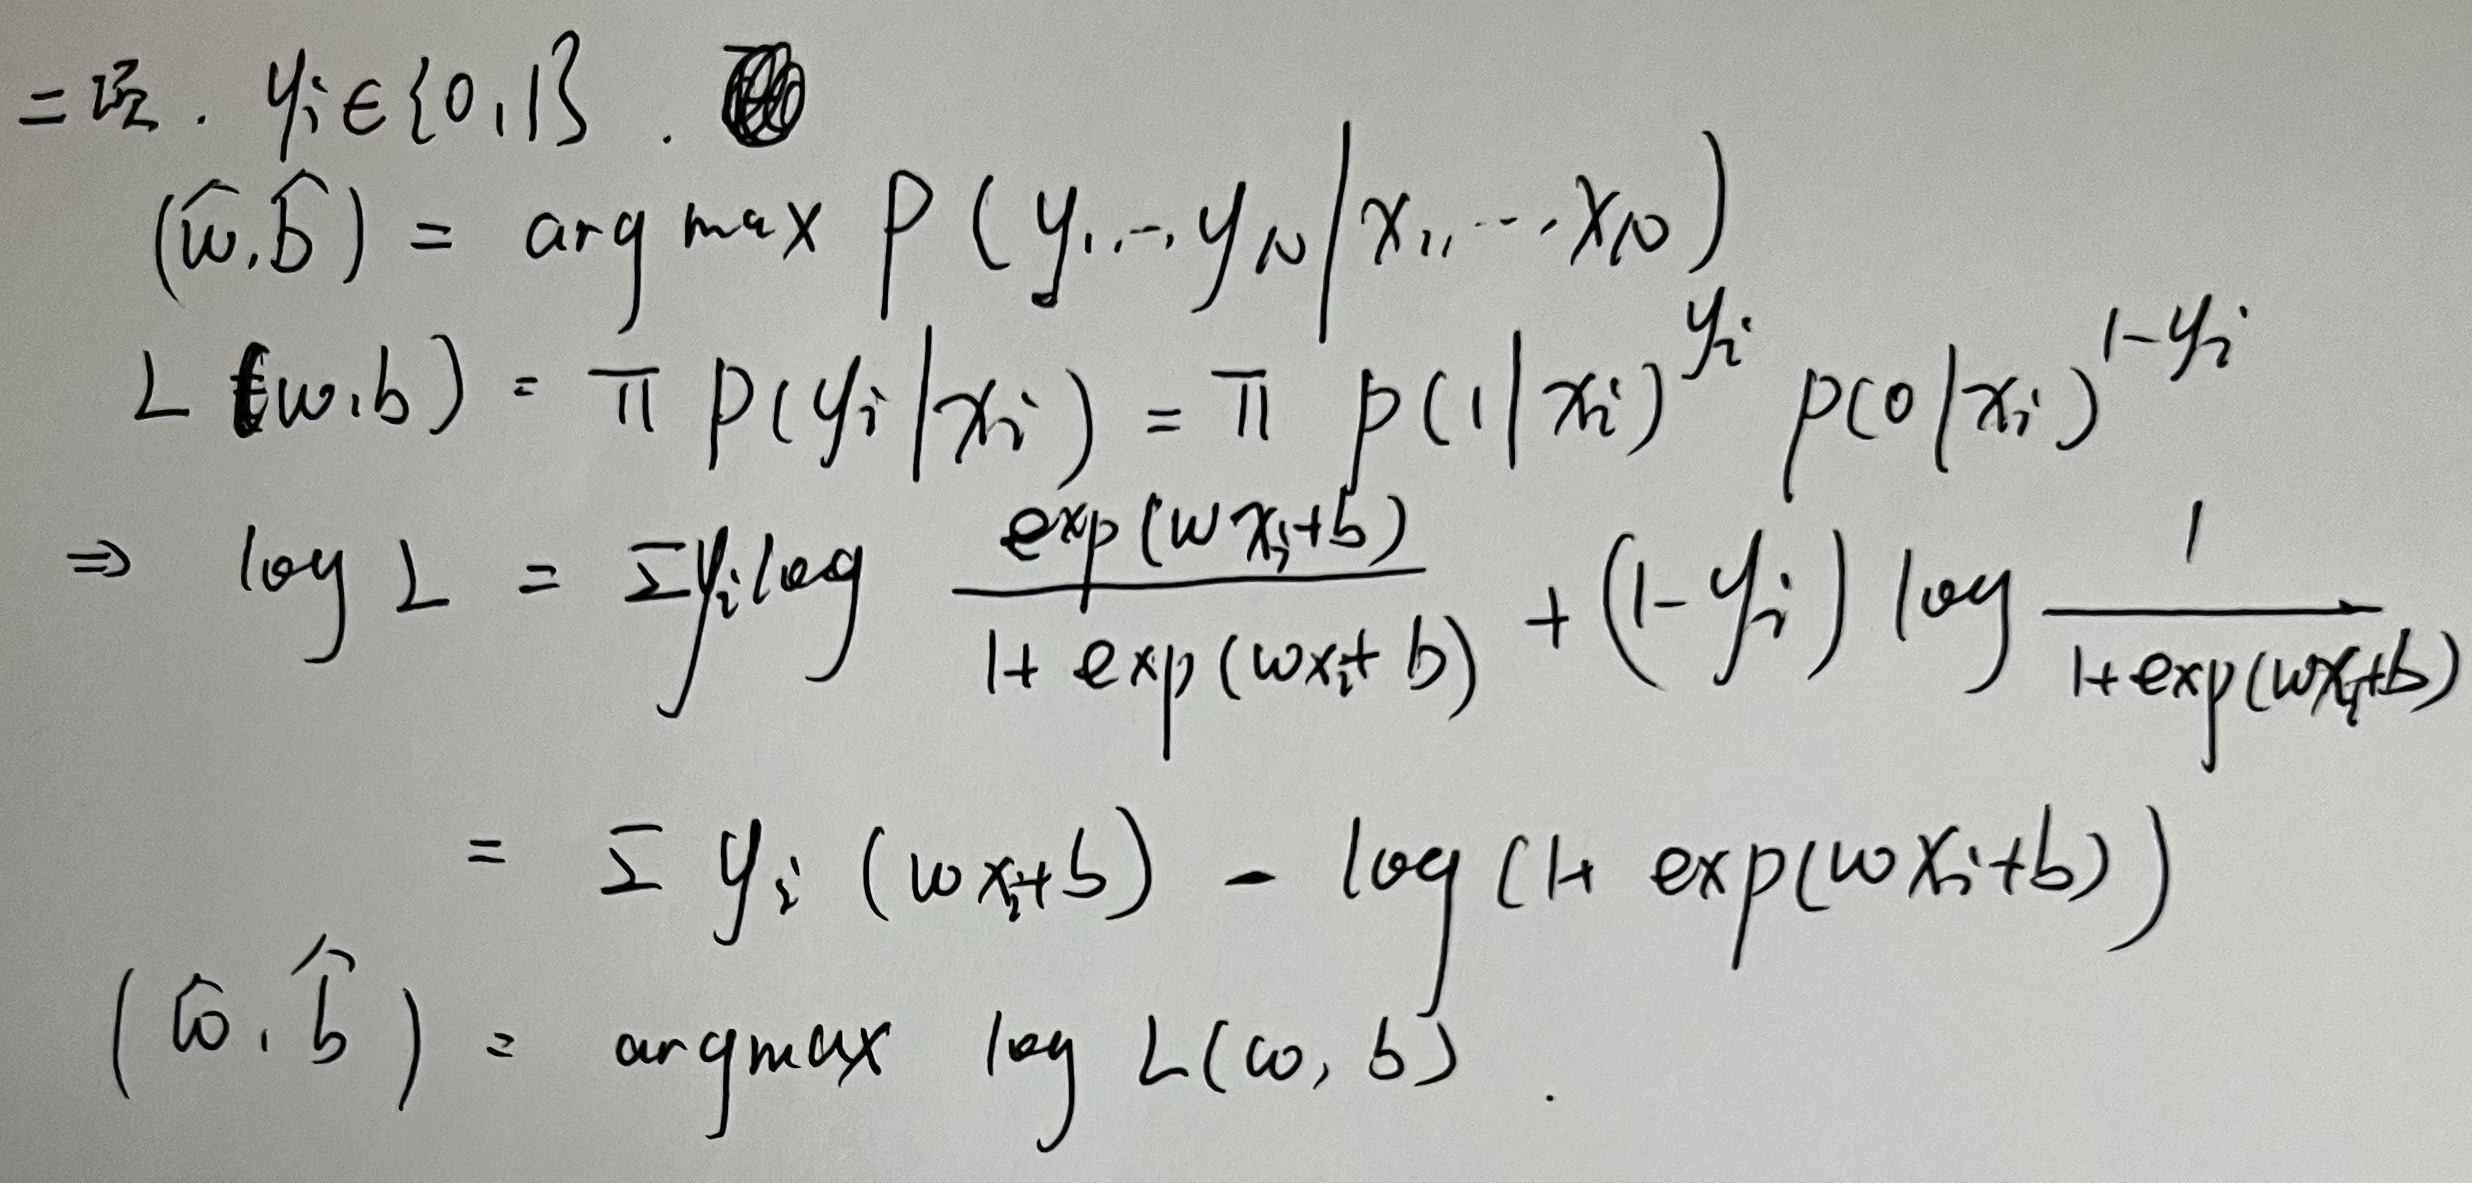 二项. yᵢ∈{0,1}.
(ŵ,b̂) = arg max P(y₁,…,y_N|x₁,…,x_N)
L(w,b) = π p(yᵢ|xᵢ) = π p(1|xᵢ)^yᵢ p(0|xᵢ)^1-yᵢ
⇒ log L = Σyᵢlog exp(wxᵢ+b)/1+exp(wxᵢ+b) + (1-yᵢ) log 1/1+exp(wxᵢ+b)
= Σ yᵢ (wxᵢ+b) - log(1+ exp(wxᵢ+b))
(ŵ,b̂) = argmax log L(w,b).